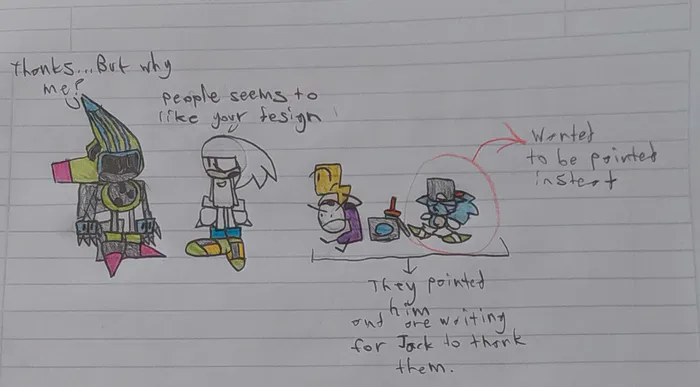 Thanks...But why
me?
people seems to
like your design
Wanted
to be pointed
insteat
They pointed
him
and are waiting
for Jack to thank
them.